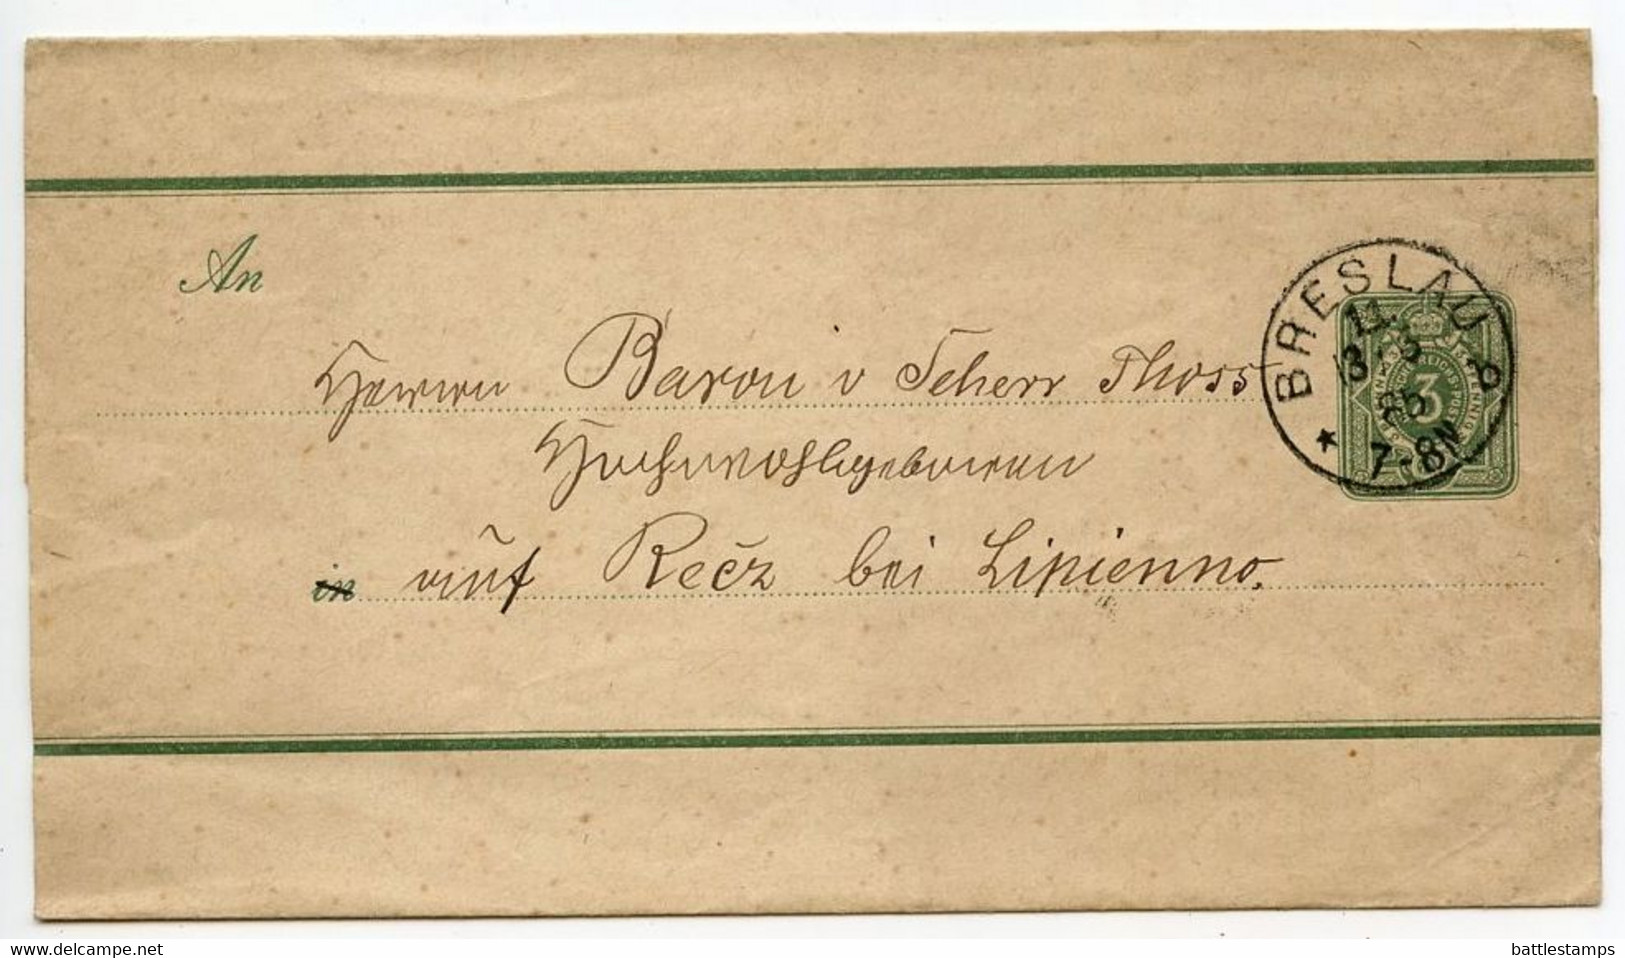 An
Herrn Baron v Scherr Thoss
Hochwohlgeboren
in auf Rečz bei Lipienno.
BRESLAU 8
13 3
85
7-8N
3
delcampe.net
battlestamps